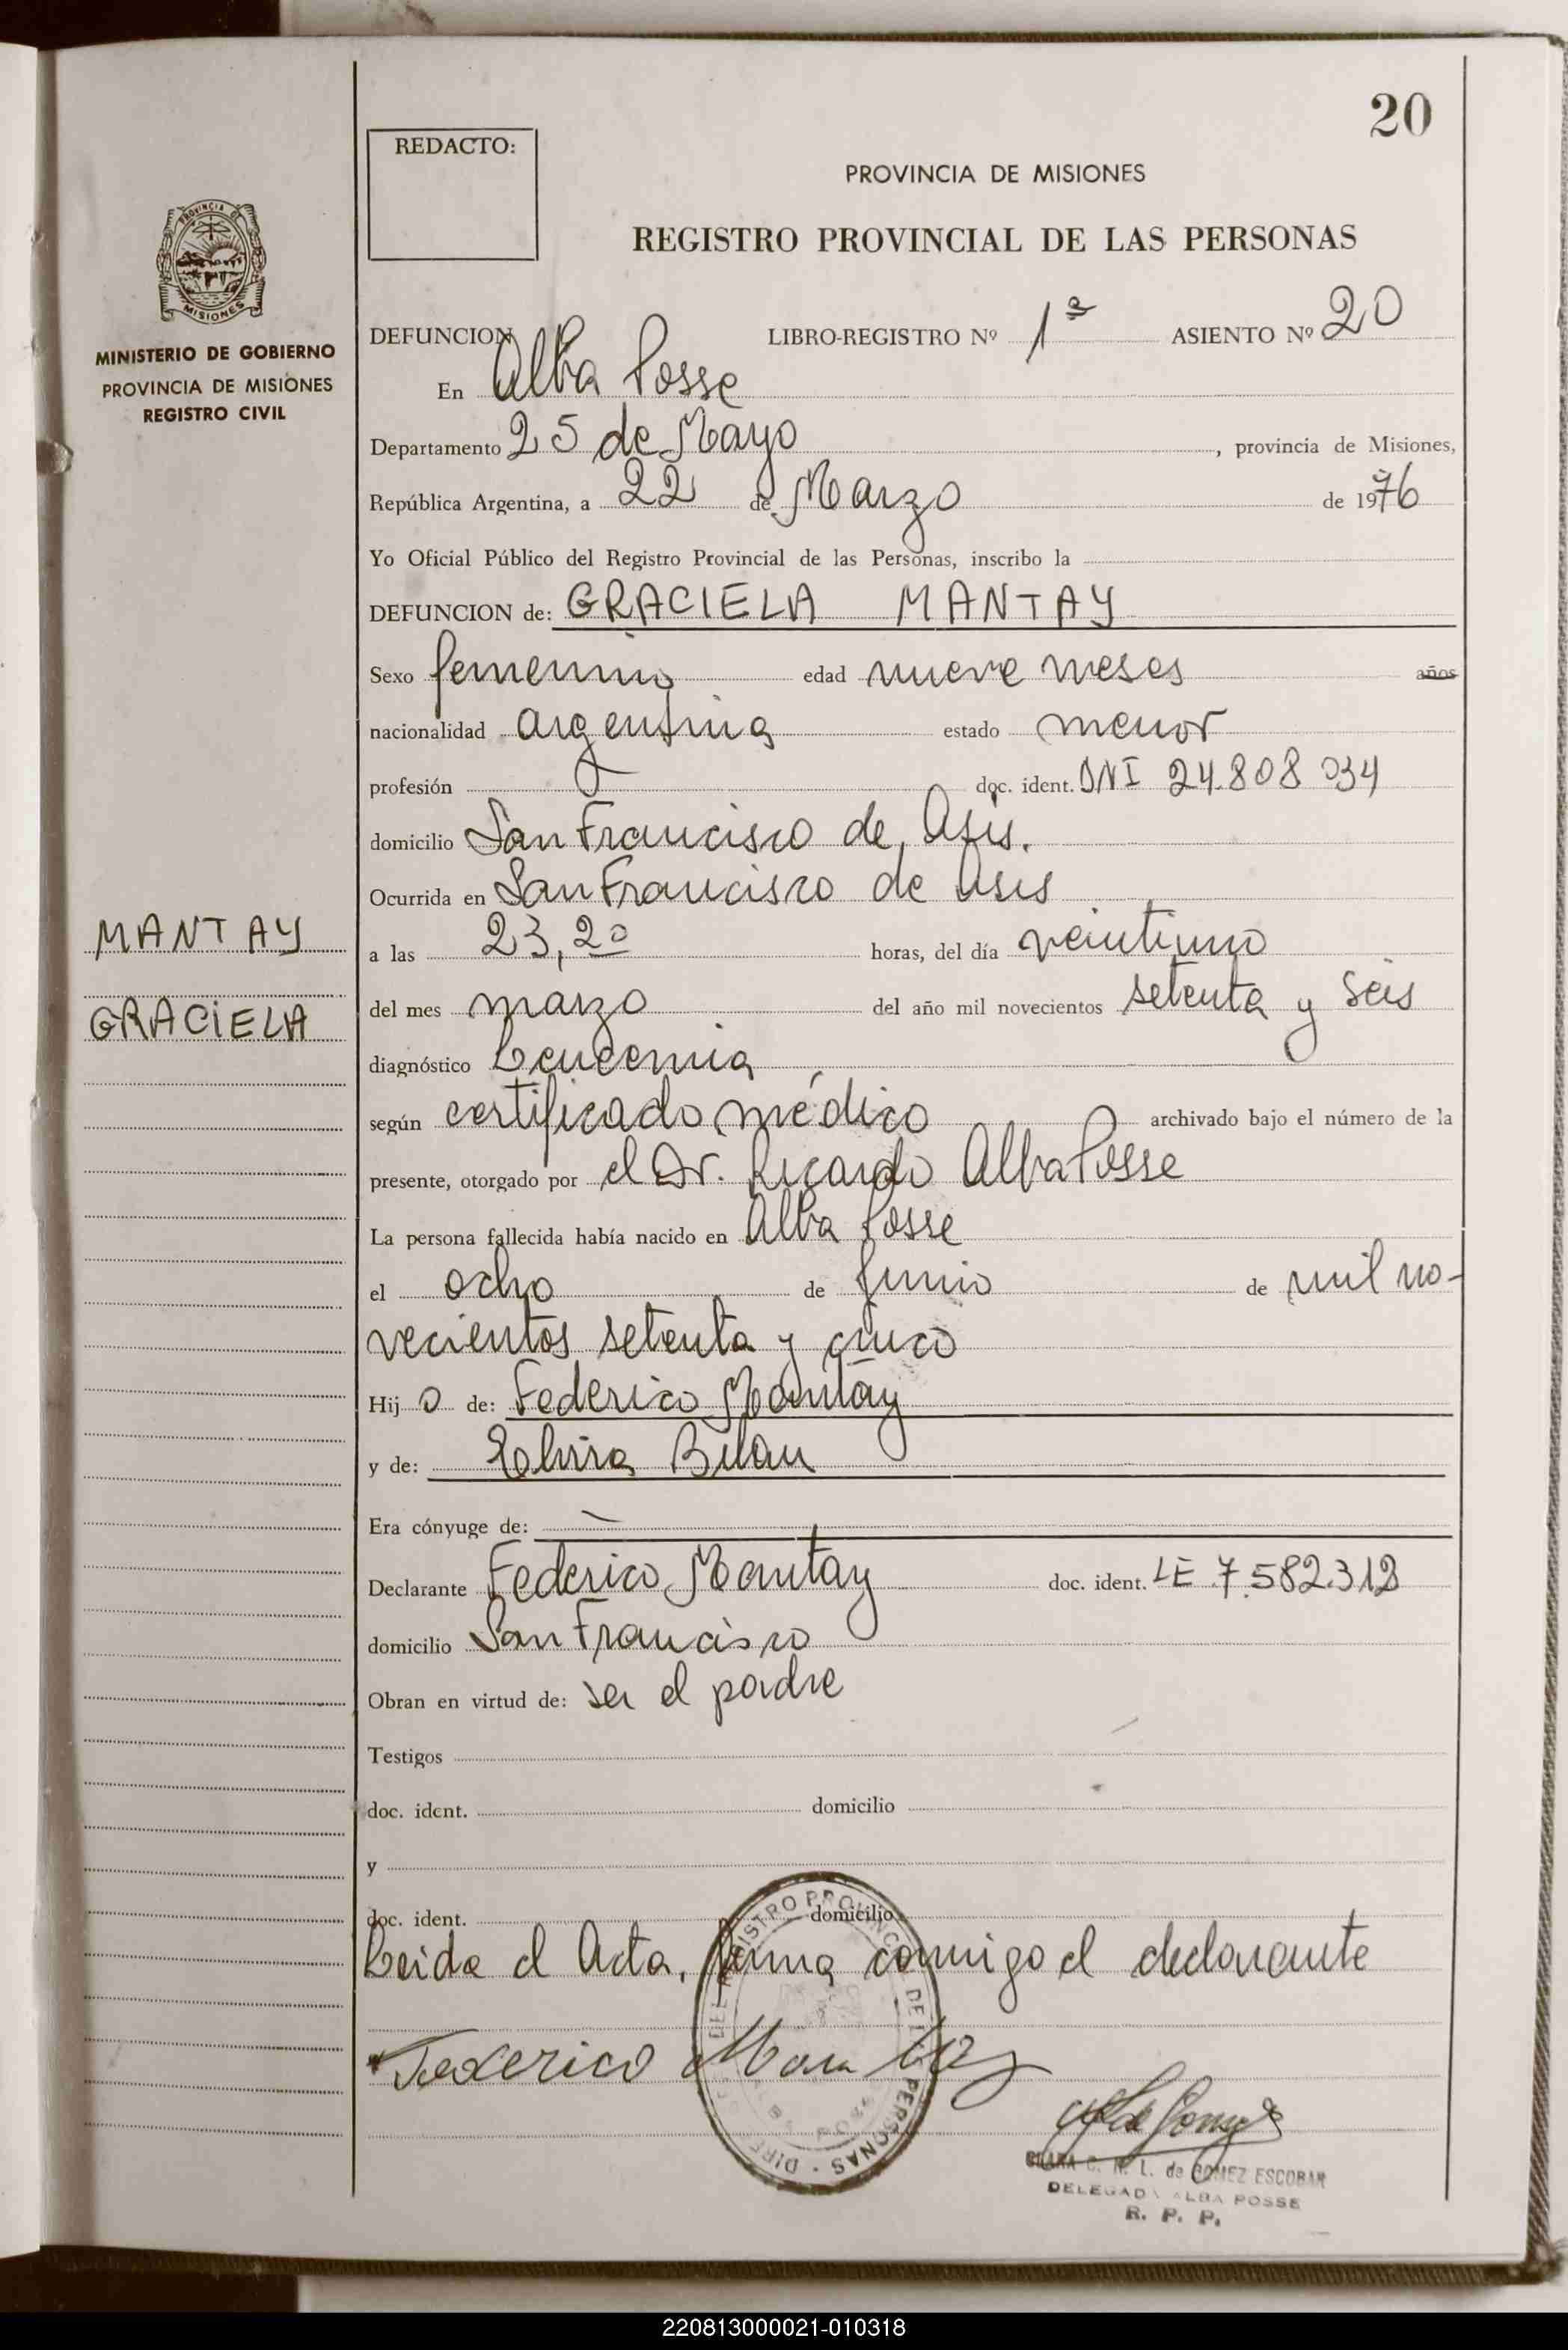 20
REDACTO:
PROVINCIA DE MISIONES
REGISTRO PROVINCIAL DE LAS PERSONAS
PROVINCIA DE
MISIONES
MINISTERIO DE GOBIERNO
PROVINCIA DE MISIONES
REGISTRO CIVIL
DEFUNCION LIBRO-REGISTRO Nº 1ª ASIENTO Nº 20
En Alba Posse
Departamento 25 de Mayo, provincia de Misiones,
República Argentina, a 22 de Marzo de 1976
Yo Oficial Público del Registro Provincial de las Personas, inscribo la
DEFUNCION de: GRACIELA MANTAY
Sexo femenino edad nueve meses años
nacionalidad argentina estado menor
profesión doc. ident. DNI 24.808 034
domicilio San Francisco de Asis.
Ocurrida en San Francisco de Asis
a las 23,20 horas, del día veintiuno
del mes marzo del año mil novecientos setenta y seis
diagnóstico Leucemia
según certificado médico archivado bajo el número de la
presente, otorgado por el Dr. Ricardo Alba Posse
La persona fallecida había nacido en Alba Posse
el ocho de Junio de mil no-
vecientos setenta y cinco
Hij a de: Federico Mantay
y de: Elvira Bilau
Era cónyuge de: —
Declarante Federico Mantay doc. ident. LE 7.582.312
domicilio San Francisco
Obran en virtud de: ser el padre
Testigos
doc. ident. domicilio
y
doc. ident. domicilio
Leida el Acta, firma conmigo el declarante
Federico Mantay
MANTAY
GRACIELA
DEL REGISTRO PROVINCIAL DE LAS PERSONAS
CLARA C. N. L. de GOMEZ ESCOBAR
DELEGADA ALBA POSSE
R. P. P.
220813000021-010318